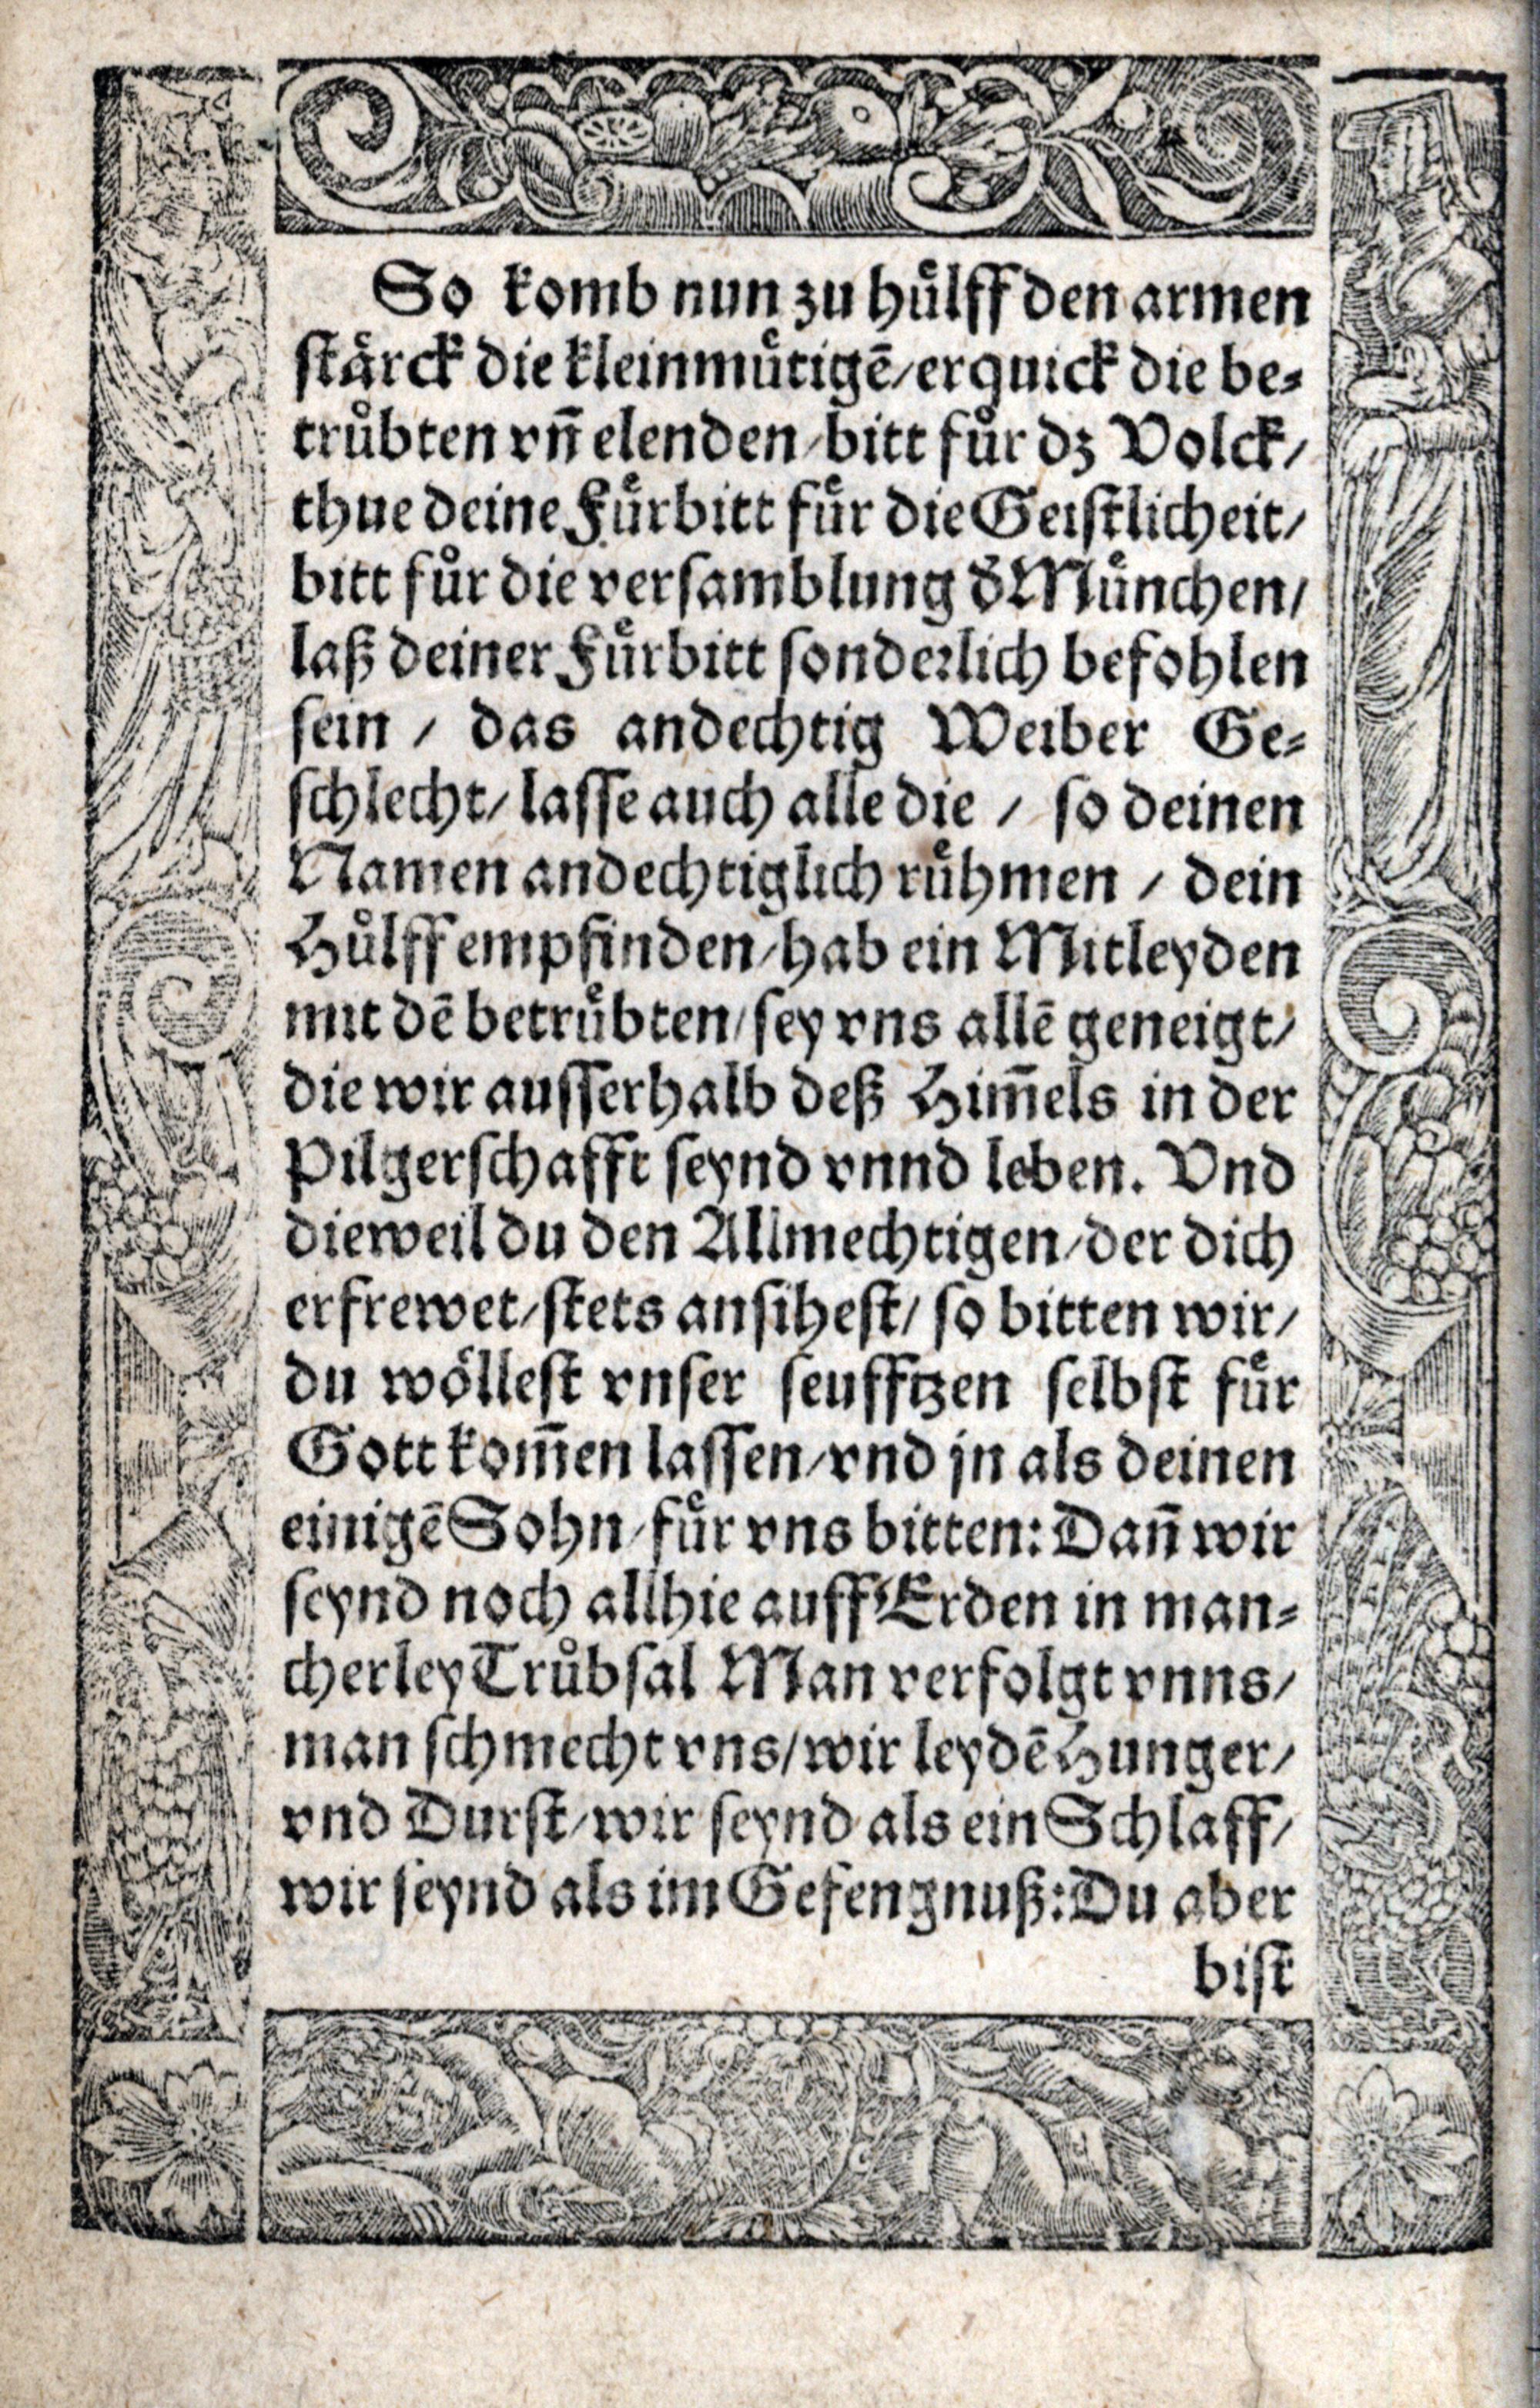 So komb nun zu huͤlff den armen
staͤrck die kleinmuͤtigē/erquick die be⸗
truͤbten vn̄ elenden/bitt fuͤr dz Volck/
thue deine Fuͤrbitt fuͤr die Geistlicheit/
bitt fuͤr die versamblung d̕ Muͤnchen/
laß deiner Fuͤrbitt sonderlich befohlen
sein / das andechtig Weiber Ge⸗
schlecht/ lasse auch alle die / so deinen
Namen andechtiglich ruͤhmen / dein
Huͤlff empfinden/hab ein Mitleyden
mit dē betruͤbten/sey vns allē geneigt/
die wir ausserhalb deß Him̄els in der
Pilgerschafft seynd vnnd leben. Vnd
dieweil du den Allmechtigen/der dich
erfrewet/stets ansihest/ so bitten wir/
du woͤllest vnser seufftzen selbst fuͤr
Gott kom̄en lassen/vnd jn als deinen
einigē Sohn/fuͤr vns bitten: Dan̄ wir
seynd noch allhie auff Erden in man⸗
cherley Truͤbsal Man verfolgt vnns/
man schmecht vns/wir leydē Hunger/
vnd Durst/wir seynd als ein Schlaff/
wir seynd als im Gefengnuß: Du aber
bist